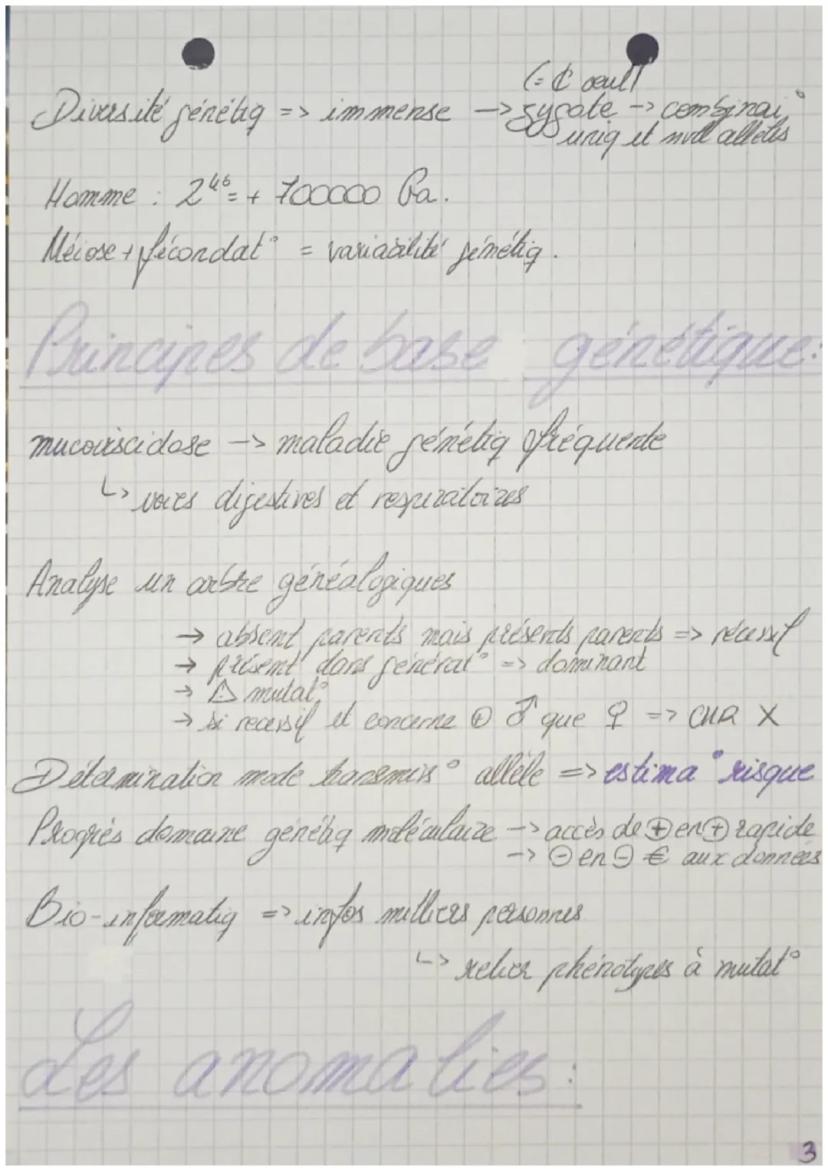 (= ₵ œuf)
Diversité génétiq => immense -> zygote -> combinai°
uniq et nvll allèles
Homme : 2⁴⁶ = + 700000 Ga.
Méiose + fécondat° = variabilité génétiq.
Principes de base génétique:
mucoviscidose -> maladie génétiq fréquente
↳ voies digestives et respiratoires
Analyse un arbre généalogiques
→ absent parents mais présents parents => récessif
→ présent dans générat° => dominant
→ ⚠ mutat°
→ si recessif et concerne ⊕ ♂ que ♀ => CHR X
Détermination mode transmis° allèle => estima° risque
Progrès domaine génétiq moléculaire -> accès de ⊕ en ⊕ rapide
-> ⊖ en ⊖ € aux données
Bio-informatiq => infos milliers personnes
↳ relier phénotypes à mutat°
Les anomalies:
3